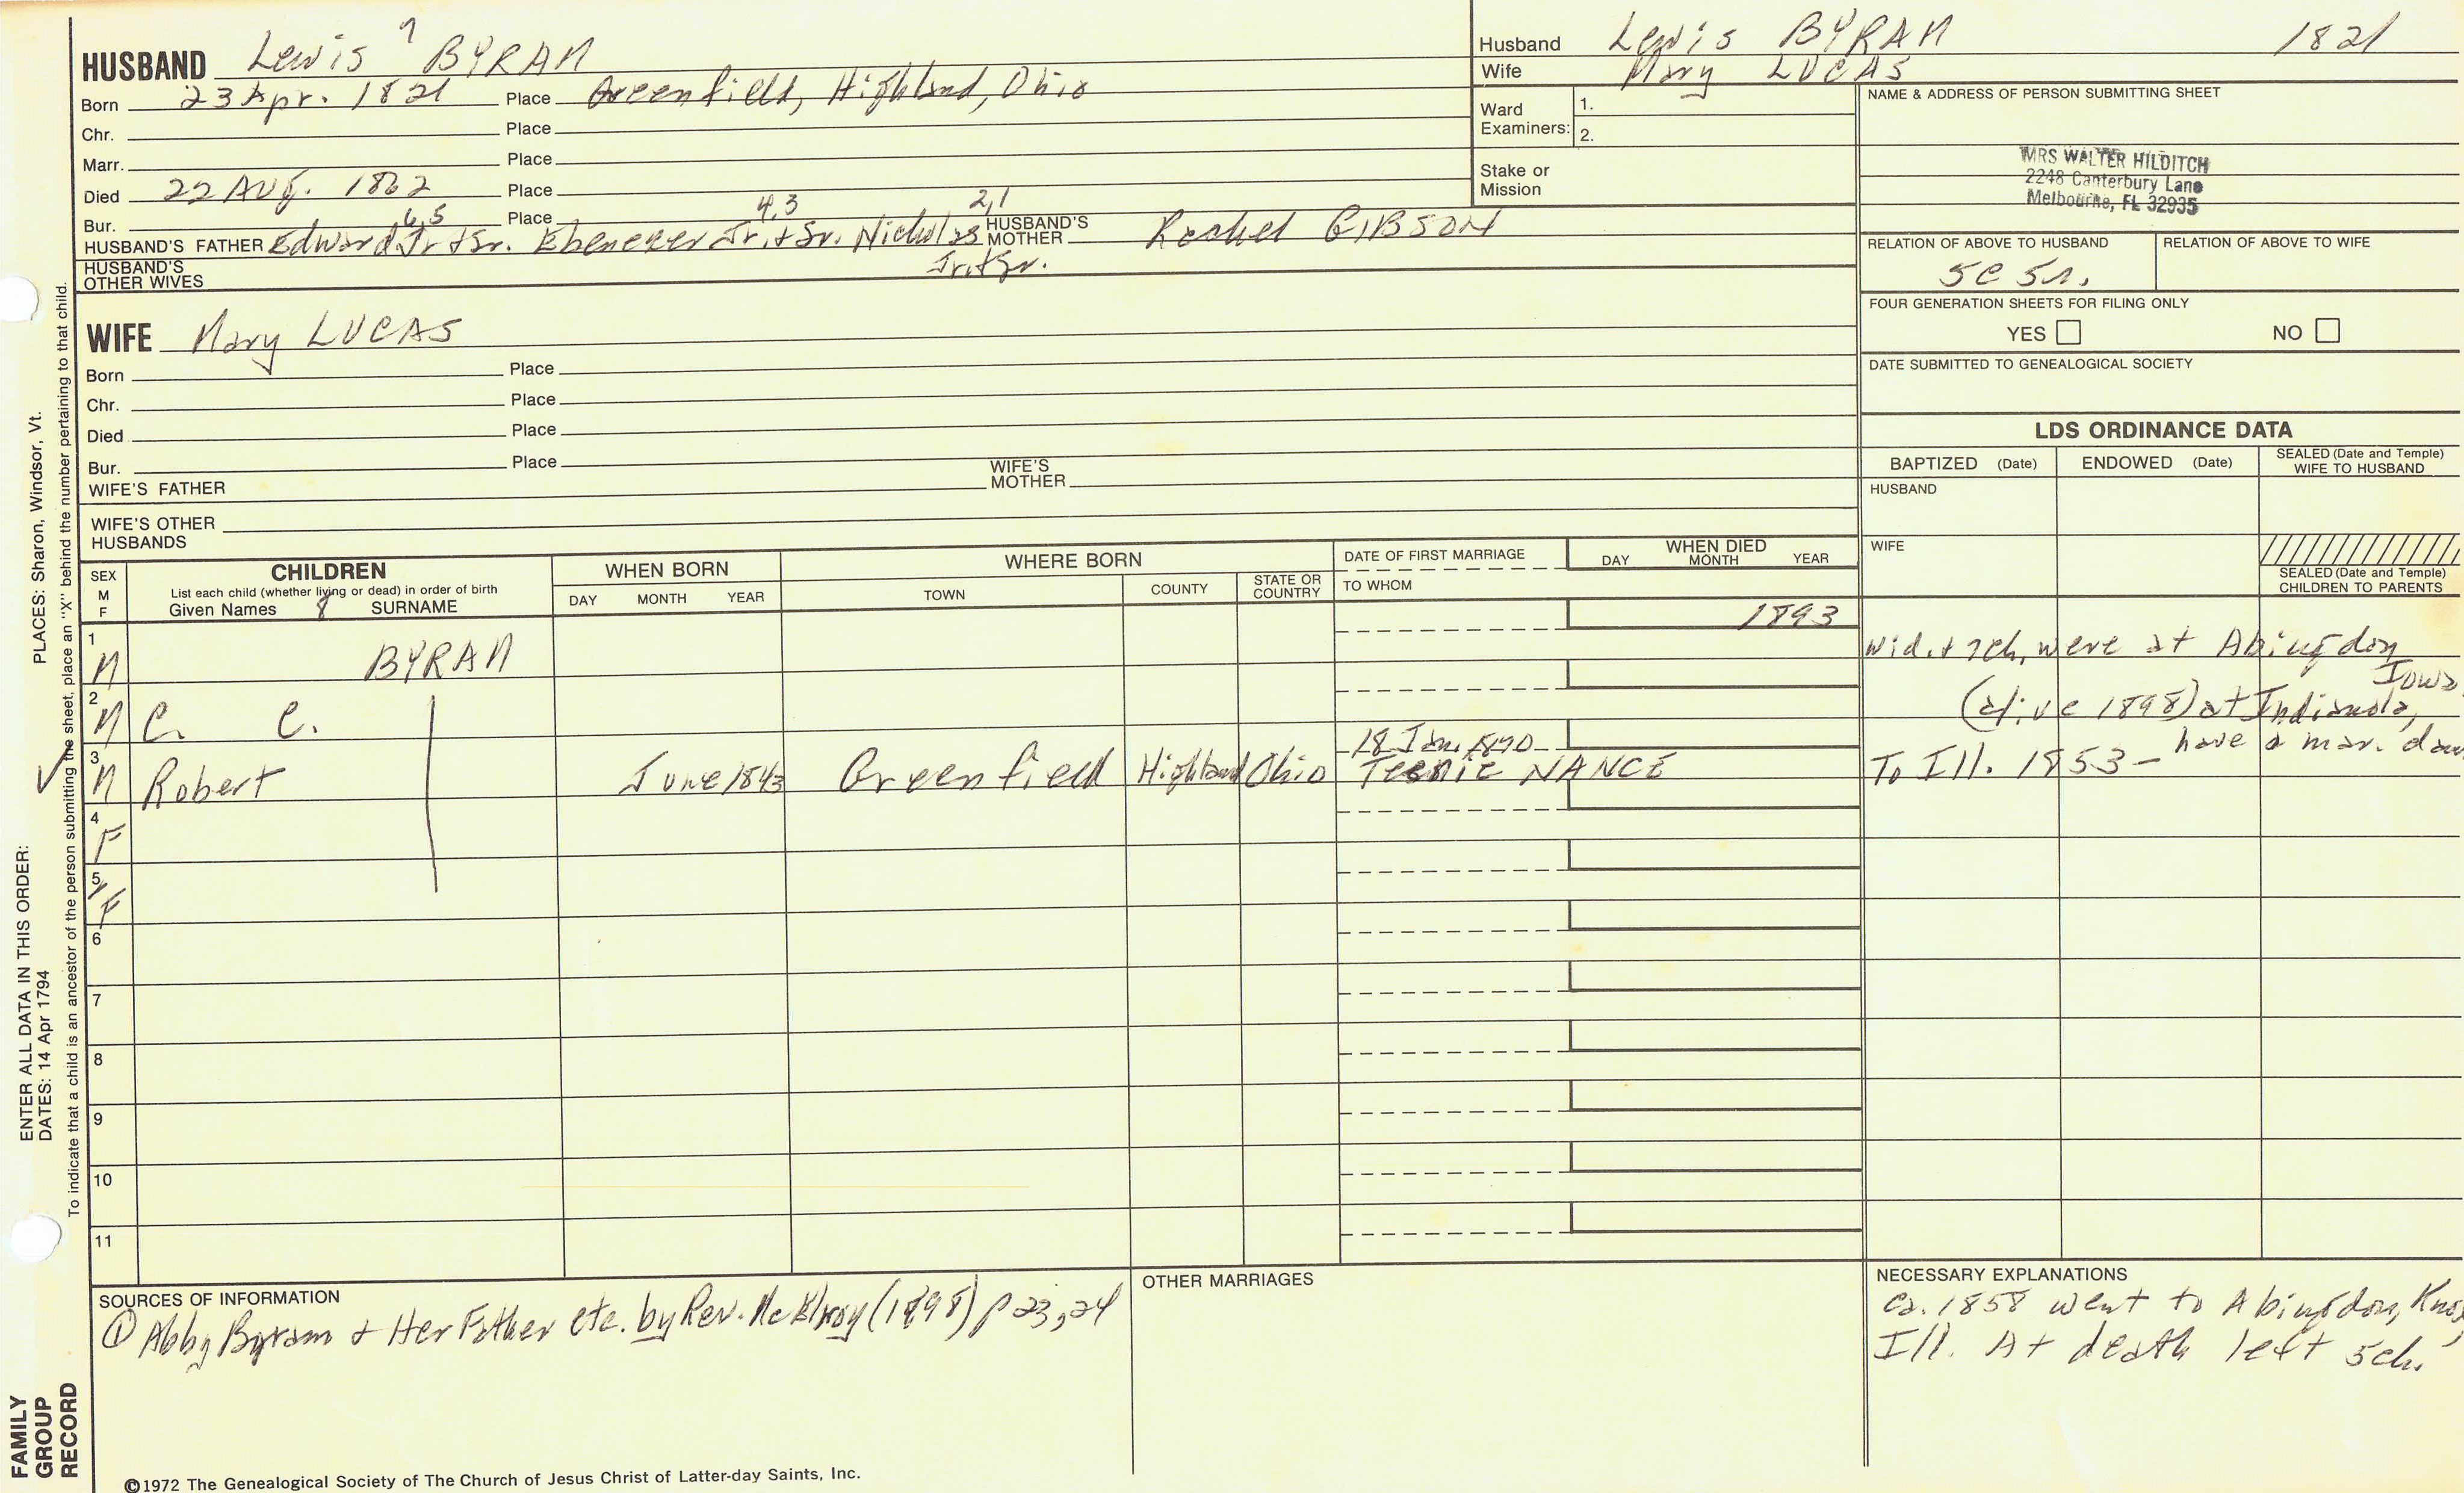 HUSBAND Lewis 7 BYRAM
Born 23 Apr. 1821 Place Greenfield, Highland, Ohio
Chr. Place
Marr. Place
Died 22 Aug. 1862 Place
Bur. Place
HUSBAND'S FATHER Edward 6,5 Jr & Sr. Ebenezer 4,3 Jr. & Sr. Nicholas 2,1 Jr. & Sr. HUSBAND'S MOTHER Rachel GIBSON
HUSBAND'S OTHER WIVES
WIFE Mary LUCAS
Born Place
Chr. Place
Died Place
Bur. Place
WIFE'S FATHER WIFE'S MOTHER
WIFE'S OTHER HUSBANDS
Husband Lewis BYRAM 1821
Wife Mary LUCAS
Ward Examiners: 1.
2.
Stake or Mission
NAME & ADDRESS OF PERSON SUBMITTING SHEET
MRS WALTER HILDITCH
2248 Canterbury Lane
Melbourne, FL 32935
RELATION OF ABOVE TO HUSBAND RELATION OF ABOVE TO WIFE
5C 5r.
FOUR GENERATION SHEETS FOR FILING ONLY
YES NO
DATE SUBMITTED TO GENEALOGICAL SOCIETY
LDS ORDINANCE DATA
BAPTIZED (Date) ENDOWED (Date) SEALED (Date and Temple) WIFE TO HUSBAND
HUSBAND
WIFE
SEALED (Date and Temple) CHILDREN TO PARENTS
SEX M F
CHILDREN
List each child (whether living or dead) in order of birth
Given Names 8 SURNAME
WHEN BORN
DAY MONTH YEAR
WHERE BORN
TOWN COUNTY STATE OR COUNTRY
DATE OF FIRST MARRIAGE
TO WHOM
WHEN DIED
DAY MONTH YEAR
1 M BYRAM 1893 Wid. & 7ch. were at Abingdon Iowa
2 M C. C. (alive 1898) at Indianola, have a mar. dau
3 M Robert June 1843 Greenfield Highland Ohio 18 Jan. 1870 NANCE To Ill. 1853-
4 F
5 F
6
7
8
9
10
11
SOURCES OF INFORMATION
① Abby Byram & Her Father etc. by Rev. McElroy (1898) p 23, 24
OTHER MARRIAGES
NECESSARY EXPLANATIONS
Ca. 1858 went to Abingdon, Knox,
Ill. At death left 5ch.
©1972 The Genealogical Society of The Church of Jesus Christ of Latter-day Saints, Inc.
FAMILY GROUP RECORD
ENTER ALL DATA IN THIS ORDER:
DATES: 14 Apr 1794
PLACES: Sharon, Windsor, Vt.
To indicate that a child is an ancestor of the person submitting the sheet, place an "X" behind the number pertaining to that child.